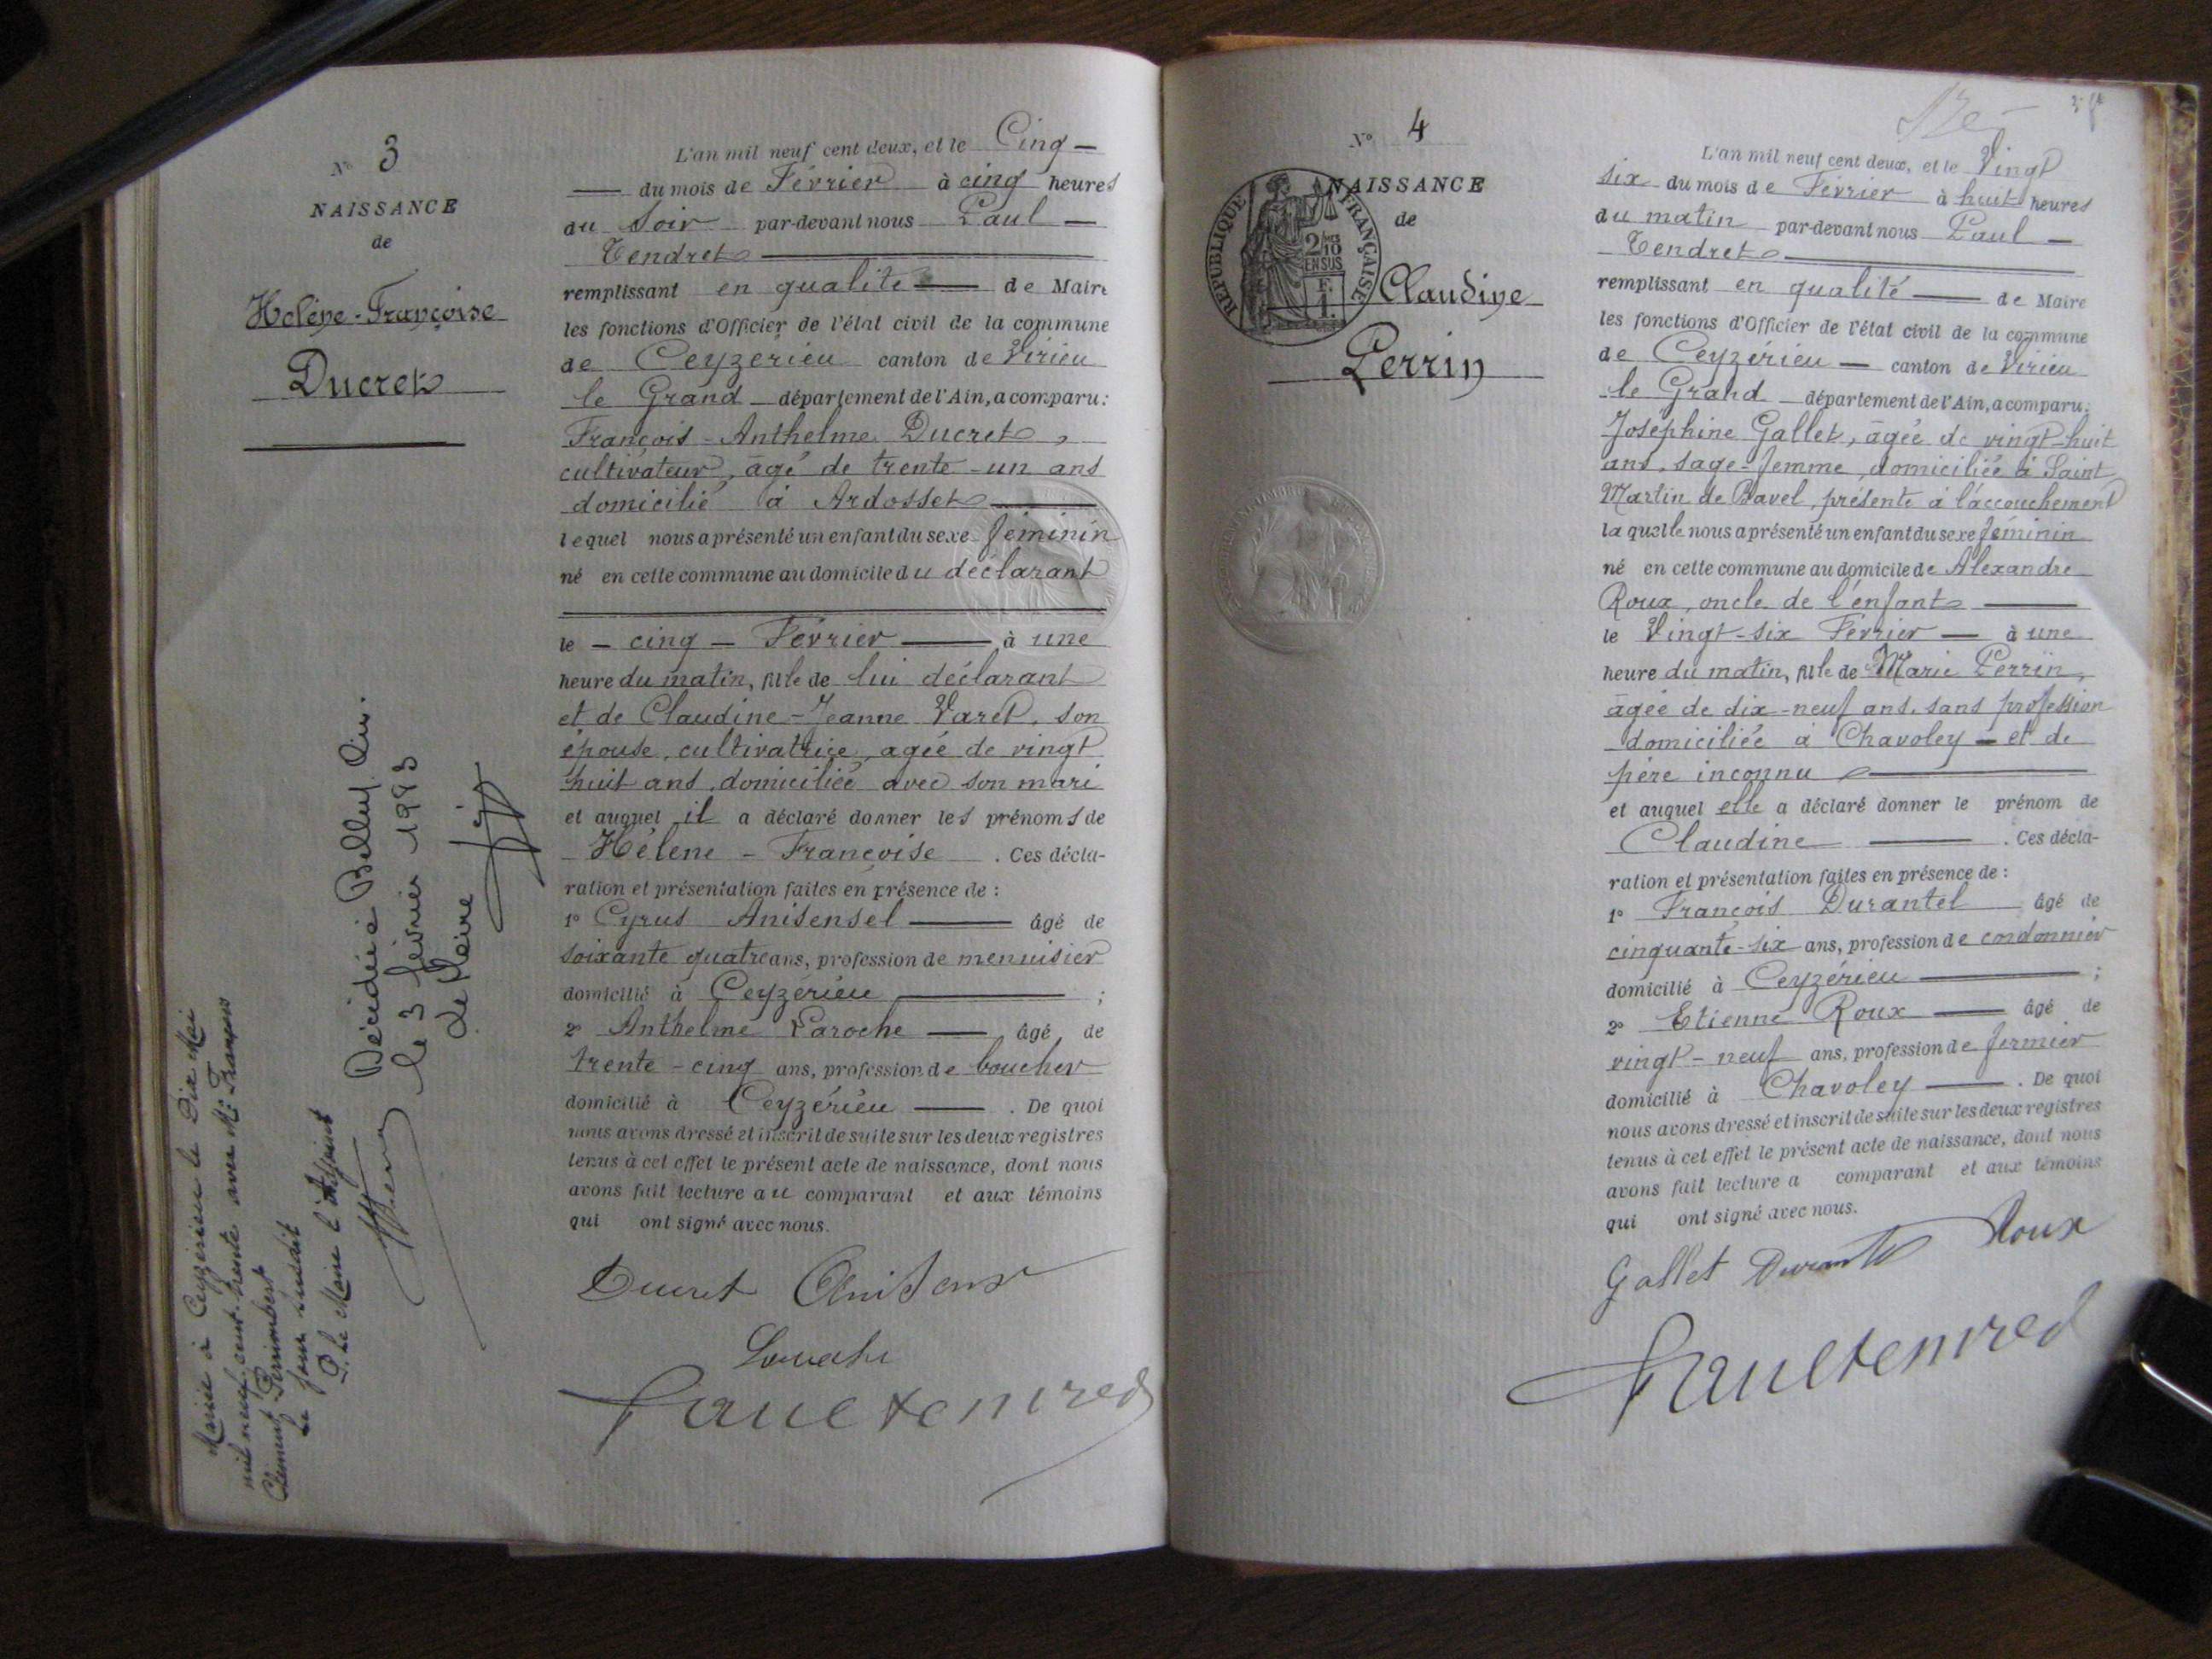 N° 3
NAISSANCE
de
Hélène-Françoise
Ducret
Mariée à Ceyzérieu le Dix Mai
mil neuf cent trente avec Mr François
Clément Perimbert
Le jour susdit
P. le Maire l'Adjoint
Décédée à Belley Ain.
le 3 février 1983
Le Maire
L'an mil neuf cent deux, et le Cinq
du mois de Février à cinq heures
du soir par-devant nous Paul
Tendret
remplissant en qualité de Maire
les fonctions d'Officier de l'état civil de la commune
de Ceyzérieu canton de Virieu
le Grand département de l'Ain, a comparu:
François-Anthelme Ducret,
cultivateur, âgé de trente-un ans
domicilié à Ardosset
lequel nous a présenté un enfant du sexe féminin
né en cette commune au domicile du déclarant
le cinq Février à une
heure du matin, fille de lui déclarant
et de Claudine-Jeanne Varet, son
épouse, cultivatrice, agée de vingt
huit ans, domiciliée avec son mari
et auquel il a déclaré donner les prénoms de
Hélène-Françoise. Ces décla-
ration et présentation faites en présence de :
1° Cyrus Anisensel âgé de
soixante quatre ans, profession de menuisier
domicilié à Ceyzérieu ;
2° Anthelme Laroche âgé de
trente-cinq ans, profession de boucher
domicilié à Ceyzérieu. De quoi
nous avons dressé et inscrit de suite sur les deux registres
tenus à cet effet le présent acte de naissance, dont nous
avons fait lecture au comparant et aux témoins
qui ont signé avec nous.
Ducret Anisens
Laroche
Paul Tendret
N° 4
NAISSANCE
de
RÉPUBLIQUE FRANÇAISE
2/10 EN SUS
F. 1.
Claudine
Perrin
L'an mil neuf cent deux, et le Vingt
six du mois de Février à huit heures
du matin par-devant nous Paul
Tendret
remplissant en qualité de Maire
les fonctions d'Officier de l'état civil de la commune
de Ceyzérieu canton de Virieu
le Grand département de l'Ain, a comparu:
Joséphine Gallet, âgée de vingt-huit
ans, sage-femme, domiciliée à Saint
Martin de Bavel, présente à l'accouchement
laquelle nous a présenté un enfant du sexe féminin
né en cette commune au domicile de Alexandre
Roux, oncle de l'enfant
le Vingt-six Février à une
heure du matin, fille de Marie Perrin,
âgée de dix-neuf ans, sans profession
domiciliée à Chavoley et de
père inconnu
et auquel elle a déclaré donner le prénom de
Claudine. Ces décla-
ration et présentation faites en présence de :
1° François Durantel âgé de
cinquante-six ans, profession de cordonnier
domicilié à Ceyzérieu ;
2° Etienne Roux âgé de
vingt-neuf ans, profession de fermier
domicilié à Chavoley. De quoi
nous avons dressé et inscrit de suite sur les deux registres
tenus à cet effet le présent acte de naissance, dont nous
avons fait lecture a comparant et aux témoins
qui ont signé avec nous.
Gallet Durantel Roux
Paul Tendret